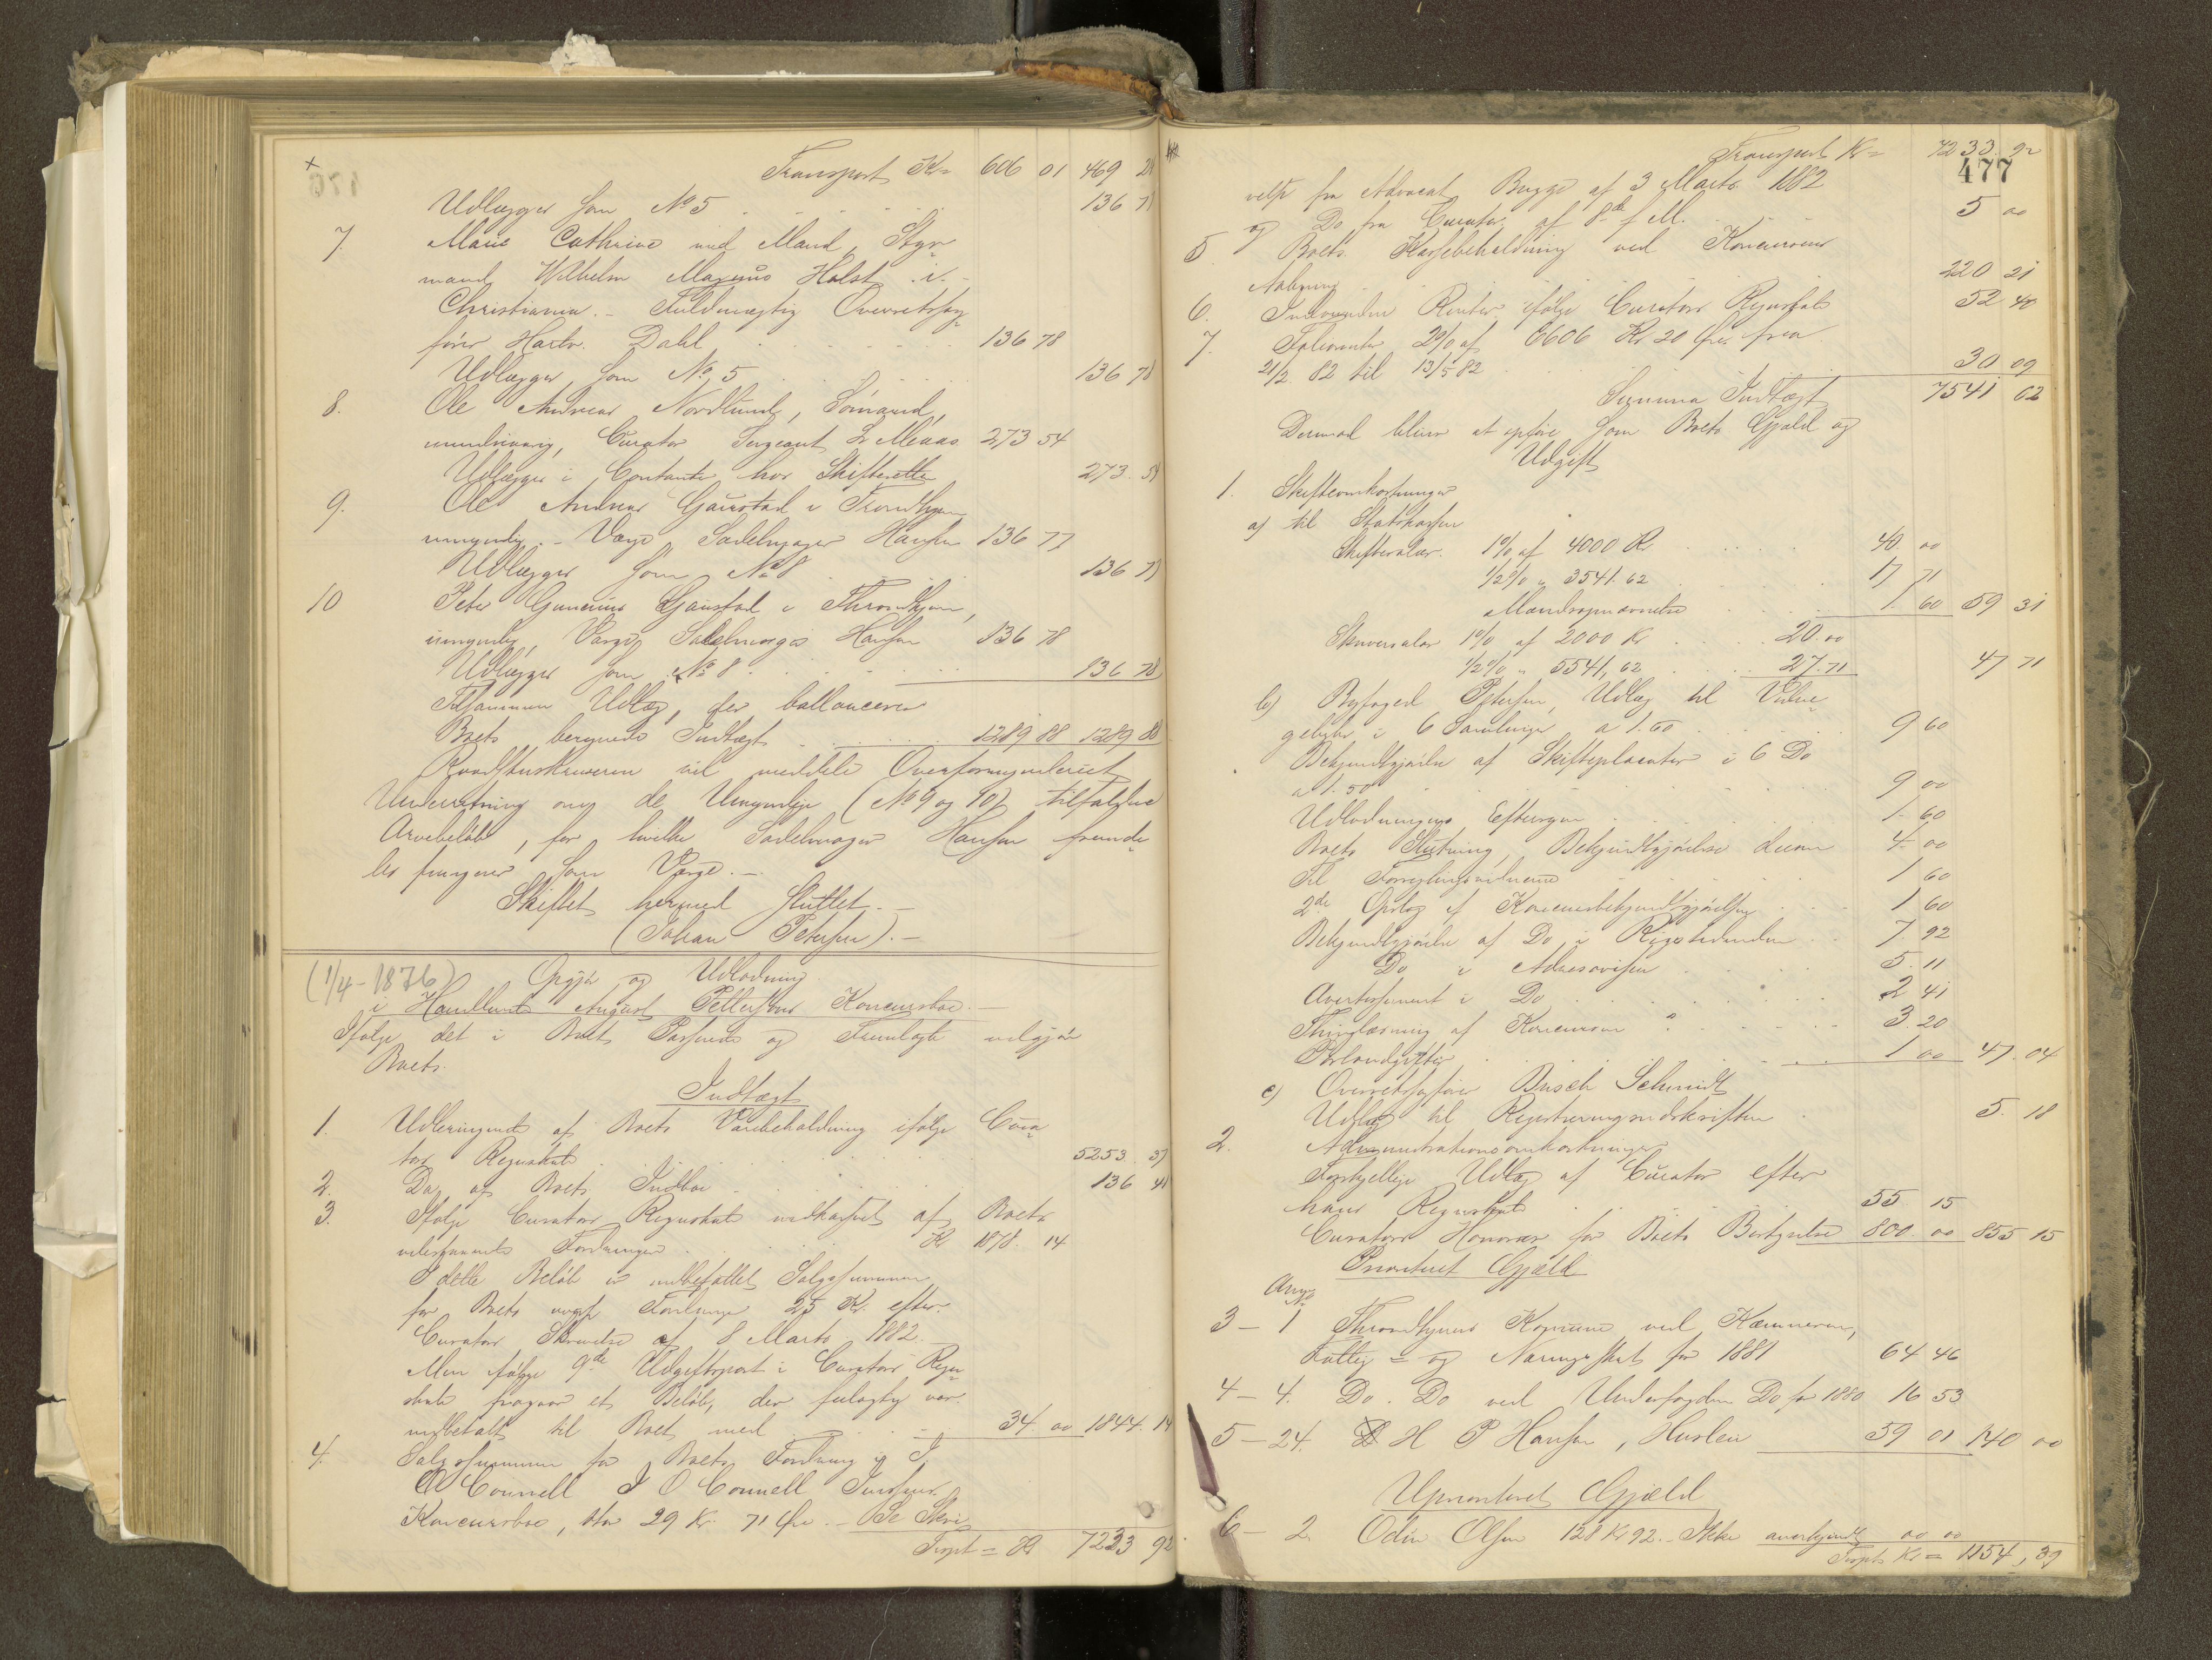 Transport Kr 606 01 469 28
Udlægges som No 5 136 78
7. Marie Cathrine med Mand, Styr=
mand Wilhelm Magnus Holst i
Christiania. - Fuldmægtig Overretssag=
fører Hartv. Dahl 136 78
Udlægges som No 5 136 78
8. Ole Andreas Nordlund, Sömand,
umulvarig, Curator Sergeant Meaas 273 54
Udlægges i Contante hos Skifteretten 273 54
9. Ole Andreas Gaustad i Trondhjem
umyndig. - Værge Sadelmager Hansen 136 77
Udlægges som No 8 136 77
10 Peter Gunerius Gaustad i Throndhjem,
umyndig, Værge Sadelmager Hansen 136 78
Udlægges som No 8 136 78
Tilsammen Udlæg, der ballancerer
Boets beregnede Indtægt 1289 88 1289 88
Raadstuskriveren vil meddele Overformynderiet
Underretning om de Umyndige (No 9 og 10) tilfaldne
Arvebeløb, for hvilke Sadelmager Hansen fremde=
les fungerer som Værge. -
Skiftet hermed sluttet. -
(Johan Petersen). -
(1/4 - 1876) Opgjør og Udlodning
i Handlende August Pettersens Concursbo. -
Ifølge det i Boet Passerede og Fremlagte udgjør
Boets
Indtægt
1. Udbringende af Boets Varebeholdning ifølge Cura=
tors Regnskab 5253 37
2. Do af Boets Indbo 136 41
3. Ifølge Curators Regnskab indkasseret af Boets
udestaaende Fordringer Kr 1878. 14
I dette Beløb er indbefattet Salgssummen
for Boets Fordringer 25 Kr. efter
Curators Skrivelse af 8 Marts 1882.
Men ifølge 9de Udgiftspost i Curators Regn=
skab fragaar et Beløb, der feilagtig var
indbetalt til Boet med 34 00 1844. 14
4. Salgssummen for Boets Fordring i J.
O Connell J O Connell
Concursbo, stor 29 Kr. 71 Øre. - Se Skri=
Trspt = Kr 7233 92
477
Transport Kr = 7233. 92
velse fra Advocat Bugge af 3 Marts 1882
og Do fra Curator af 8de s. M. 5 00
5. Boets Kassebeholdning ved Koncursens
Aabning 220 21
6. Indvundne Renter ifølge Curators Regnskab 52 40
7. Foliorenter 2% af 6606 Kr 20 Øre fra
21/2 82 til 13/5 82 30 09
Summa Indtægt 7541 62
Dermod bliver at opføre som Boets Gjæld og
Udgift
1. Skifteomkostninger
a) til Statskassen
Skiftesalær. 1% af 4000 Kr 40 00
1/2% " 3541.62 17 71
Mandsopnævnelse 1 60 59 31
Skriversalær 1% af 2000 Kr 20.00
1/2% " 5541,62 27.71 47 71
b) Byfoged Petersen, Udlæg til Vidne=
gebyhr i 6 Samlinger a 1.60 9 60
Bekjendtgjørelse af Skifteplacater i 6 Do
a 1.50 9 00
Udlodningens Eftersyn 1. 60
Boets Slutning, Bekjendtgjørelse derom 4 00
Til Forseglingsvidnerne 1 60
2de Opslag af Koncursbekjendtgjørelsen 1 60
Bekjendtgjørelse af Do i Rigstidenden 7. 92
Do i Adresavisen 5. 11
Avertissement i Do 2 41
Thinglæsning af Koncursen 3. 20
Portoudgifter 1 00 47. 04
c) Overretssagfører Busch Schmidt
Udlæg til Registreringsudskriften 5. 18
2. Administrationsomkostninger
Forskjellige Udlæg af Curator efter
hans Regnskab 55 15
Curators Honorar for Boets Bestyrelse 800. 00 855 15
Prioriteret Gjæld
Anm
No
3 - 1 Throndhjems Kommune ved Kæmneren,
Fattig = og Næringsskat for 1881 64 46
4 - 4. Do. Do ved Underfogden Do for 1880 16 53
5 - 24. H P Hansen, Husleie 59 01 140 00
Uprioriteret Gjæld
6 - 2. Odin Olsen 128 Kr 92. - Ikke anerkjendt 00 00
Trspt Kr = 1154, 39